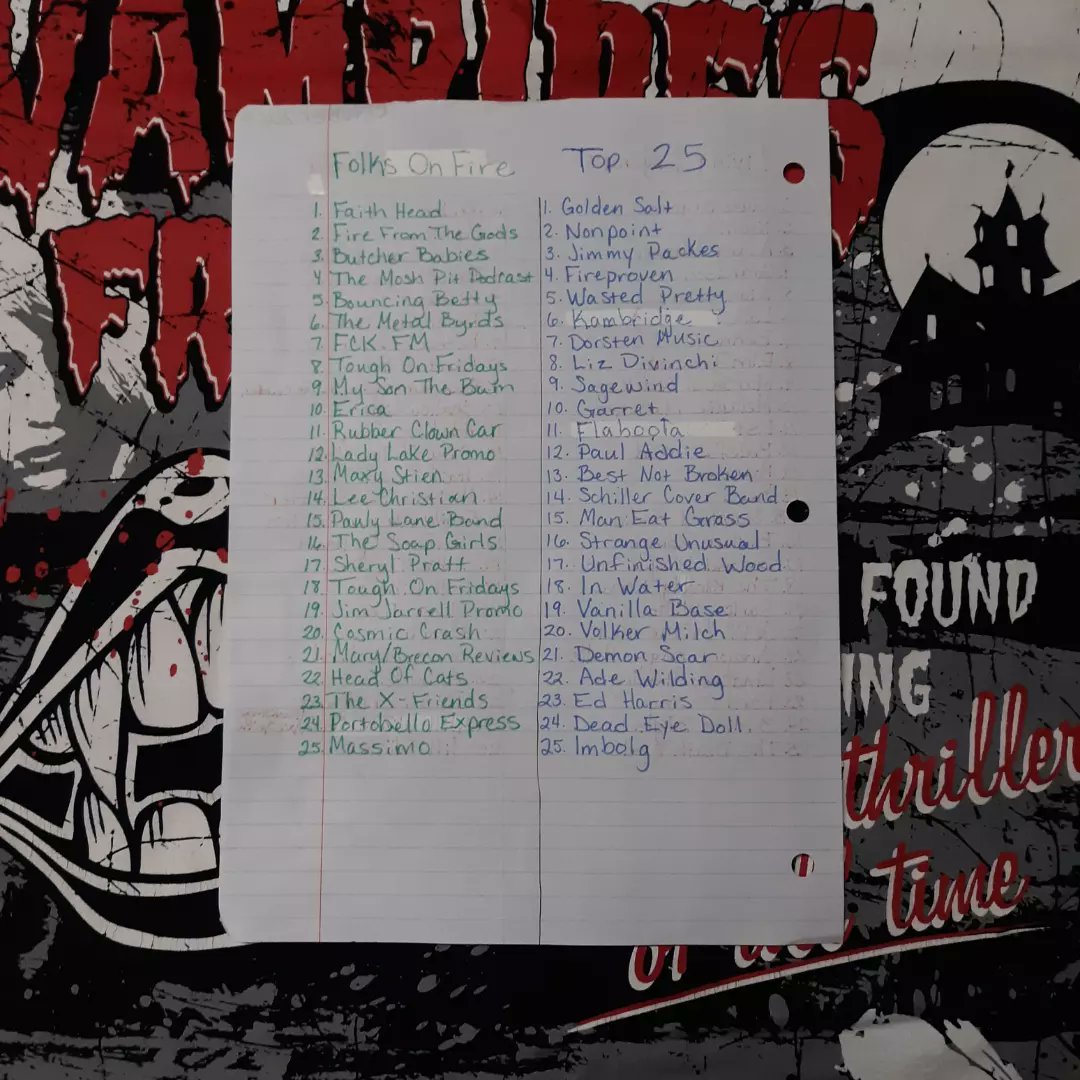 VAMPIRES
Folks On Fire
1. Faith Head
2. Fire From The Gods
3. Butcher Babies
4 The Mosh Pit Podcast
5. Bouncing Betty
6. The Metal Byrds
7. FCK FM
8. Tough On Fridays
9. My Son The Bum
10. Erica
11. Rubber Clown Car
12. Lady Lake Promo
13. Maxy Stien
14. Lee Christian
15. Pauly Lane Band
16. The Soap Girls
17. Sheryl Pratt
18. Tough On Fridays
19. Jim Jarrell Promo
20. Cosmic Crash
21. Mary/Brecon Reviews
22. Head Of Cats
23. The X-Friends
24. Portobello Express
25. Massimo
Top 25
1. Golden Salt
2. Nonpoint
3. Jimmy Packes
4. Fireproven
5. Wasted Pretty
6. Kambridge
7. Dorsten Music
8. Liz Divinchi
9. Sagewind
10. Garret
11. Flaboota
12. Paul Addie
13. Best Not Broken
14. Schiller Cover Band
15. Man Eat Grass
16. Strange Unusual
17. Unfinished Wood
18. In Water
19. Vanilla Base
20. Volker Milch
21. Demon Scar
22. Ade Wilding
23. Ed Harris
24. Dead Eye Doll
25. Imbolg
FOUND
thriller
of all time